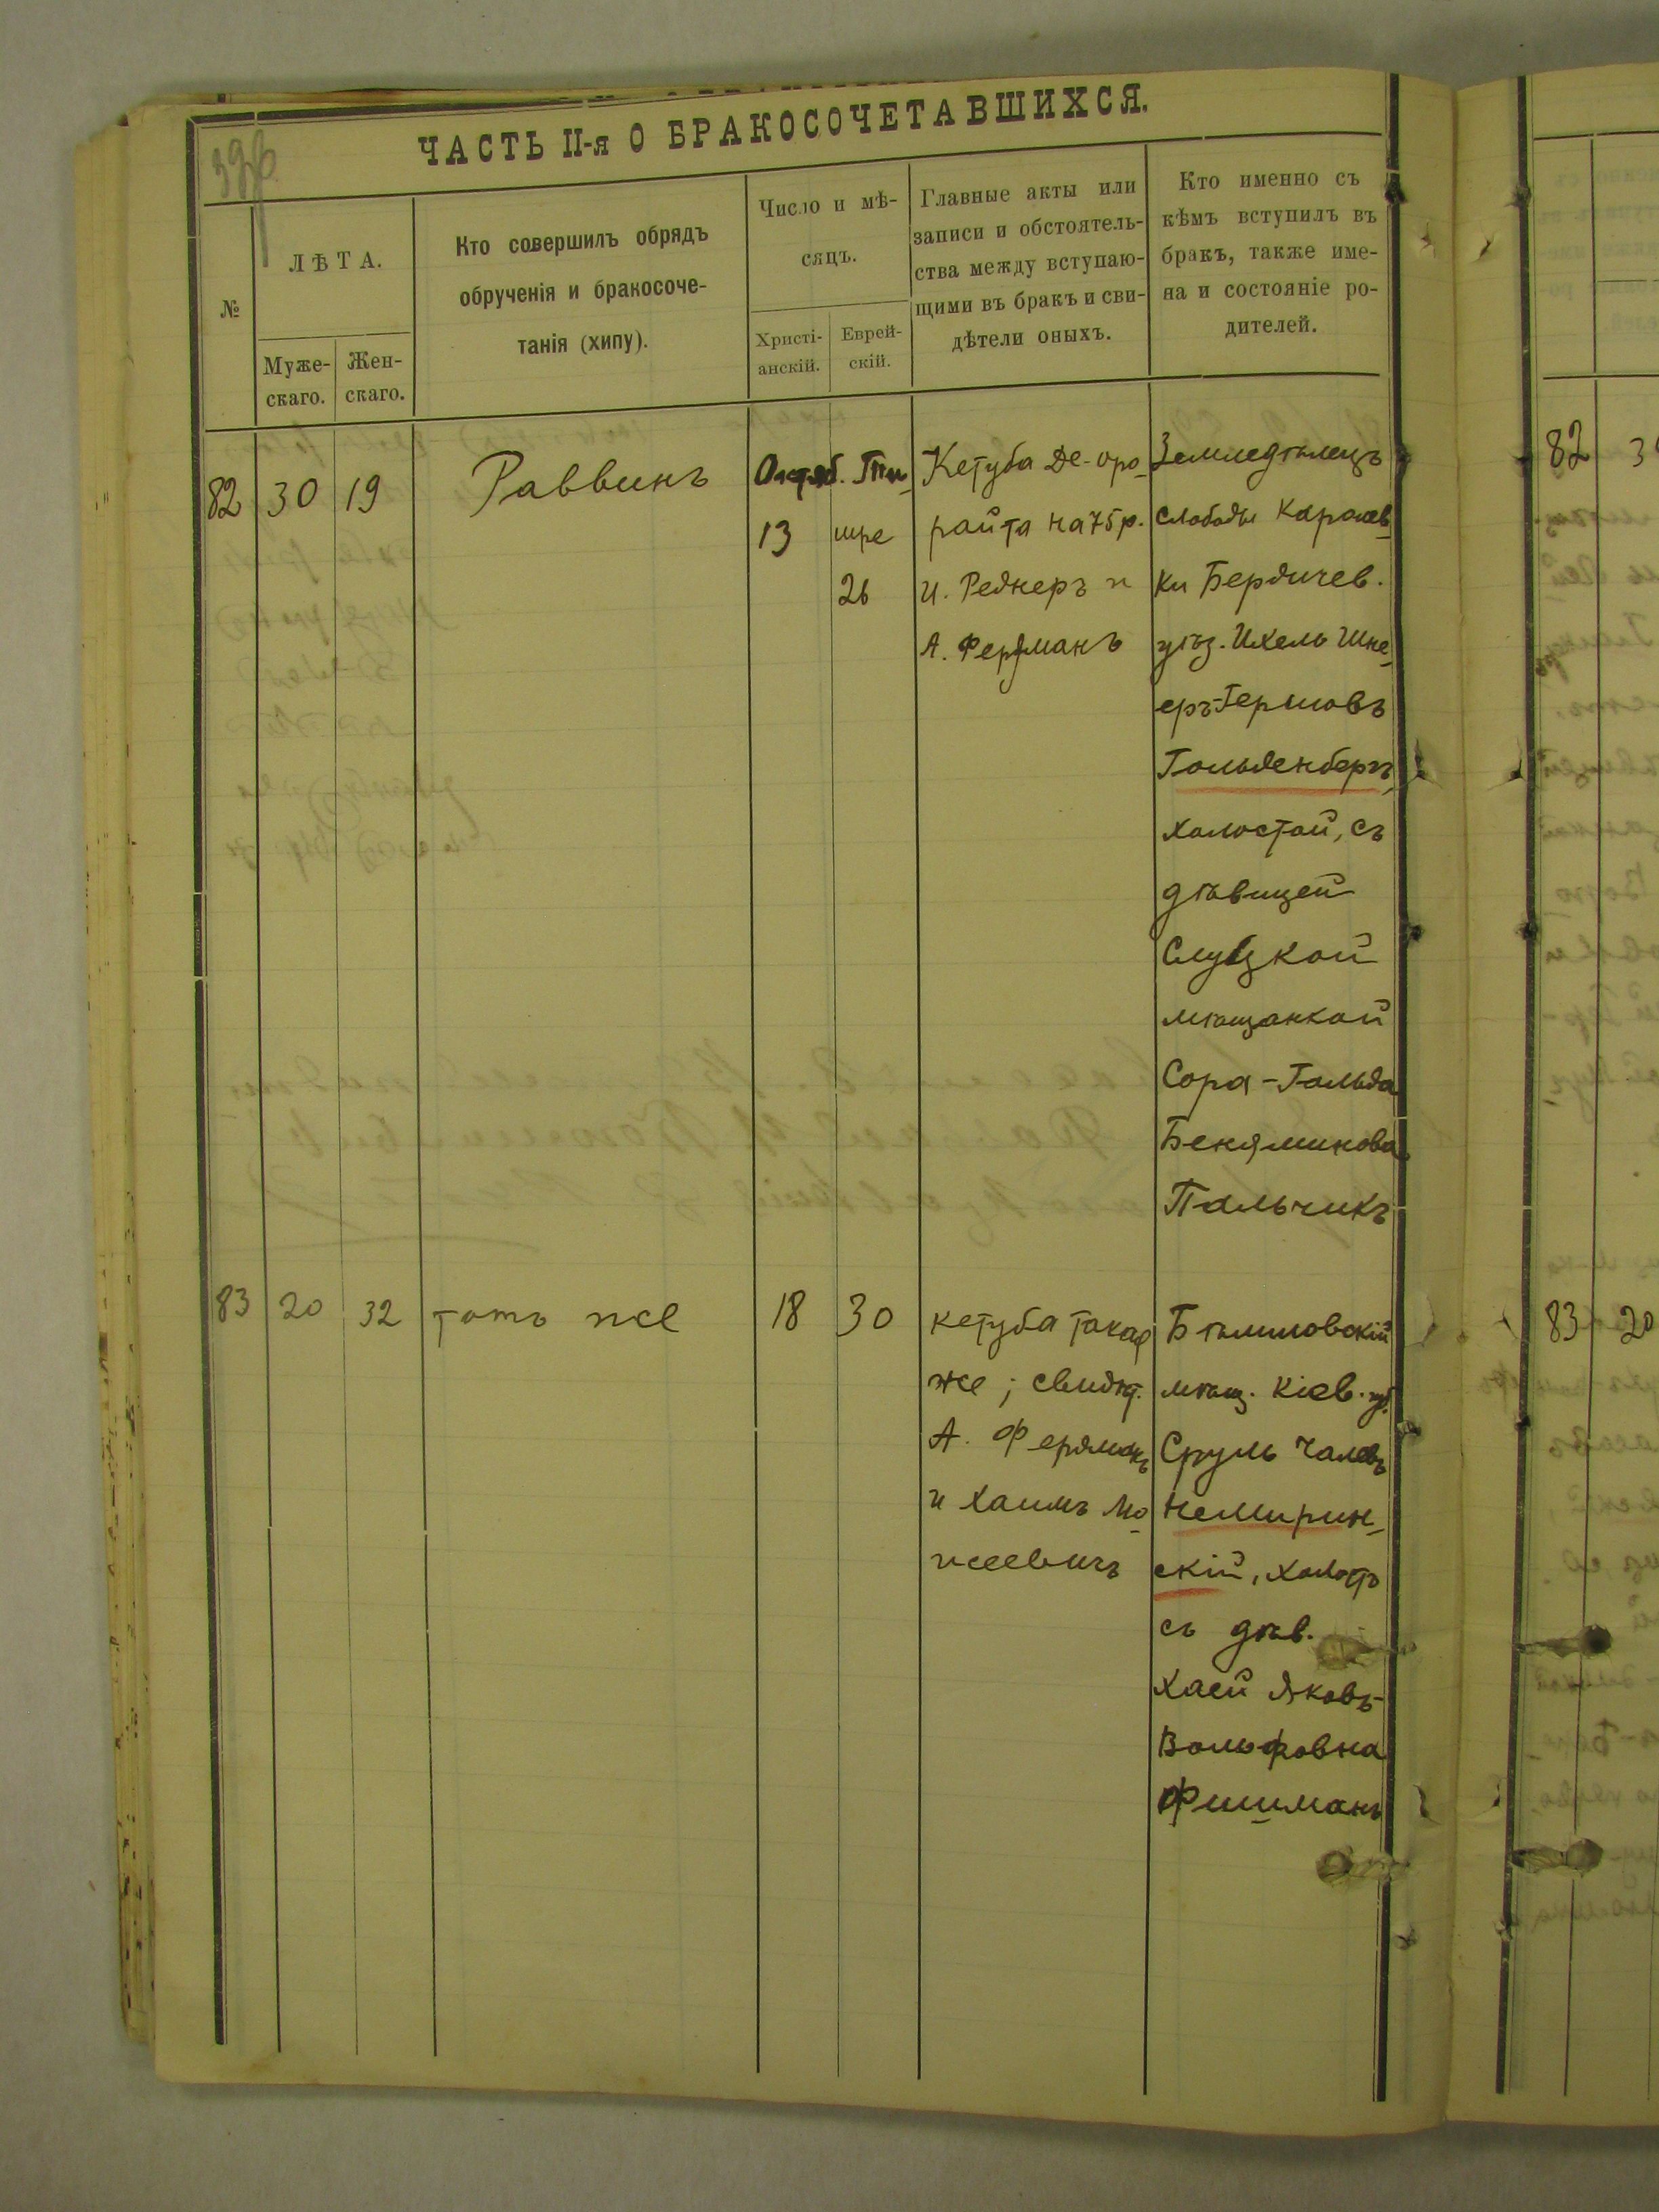 396
ЧАСТЬ II-я О БРАКОСОЧЕТАВШИХСЯ.
№
ЛѢТА.
Муже-
скаго.
Жен-
скаго.
Кто совершилъ обрядъ
обрученія и бракосоче-
танія (хипу).
Число и мѣ-
сяцъ.
Христі-
анскій.
Еврей-
скій.
Главные акты или
записи и обстоятель-
ства между вступаю-
щими въ бракъ и сви-
дѣтели оныхъ.
Кто именно съ
кѣмъ вступилъ въ
бракъ, также име-
на и состояніе ро-
дителей.
82
30
19
Раввинъ
Октяб.
13
Тиш-
шре
26
Кетуба Де-оро-
райта на 75 р.
И. Реднеръ и
А. Ферфманъ
Земледѣлецъ
слободы Каролев-
ки Бердичев.
уѣз. Ихель Шне-
еръ-Гершовъ
Гольденбергъ,
холостой, съ
дѣвицей
Слуцкой
мѣщанкой
Сора-Гольда
Беняминова
Пальчикъ
83
20
32
тотъ же
18
30
кетуба такая
же; свидѣт.
А. Ферфманъ
и Хаимъ Мо-
жеевичъ
Бѣлиловскій
мѣщ. Кіев. губ.
Сруль Чалевъ
Немирин-
скій, холост
съ дѣв.
Хаей Яковъ-
Вольфовна
Фишманъ
82
83
20